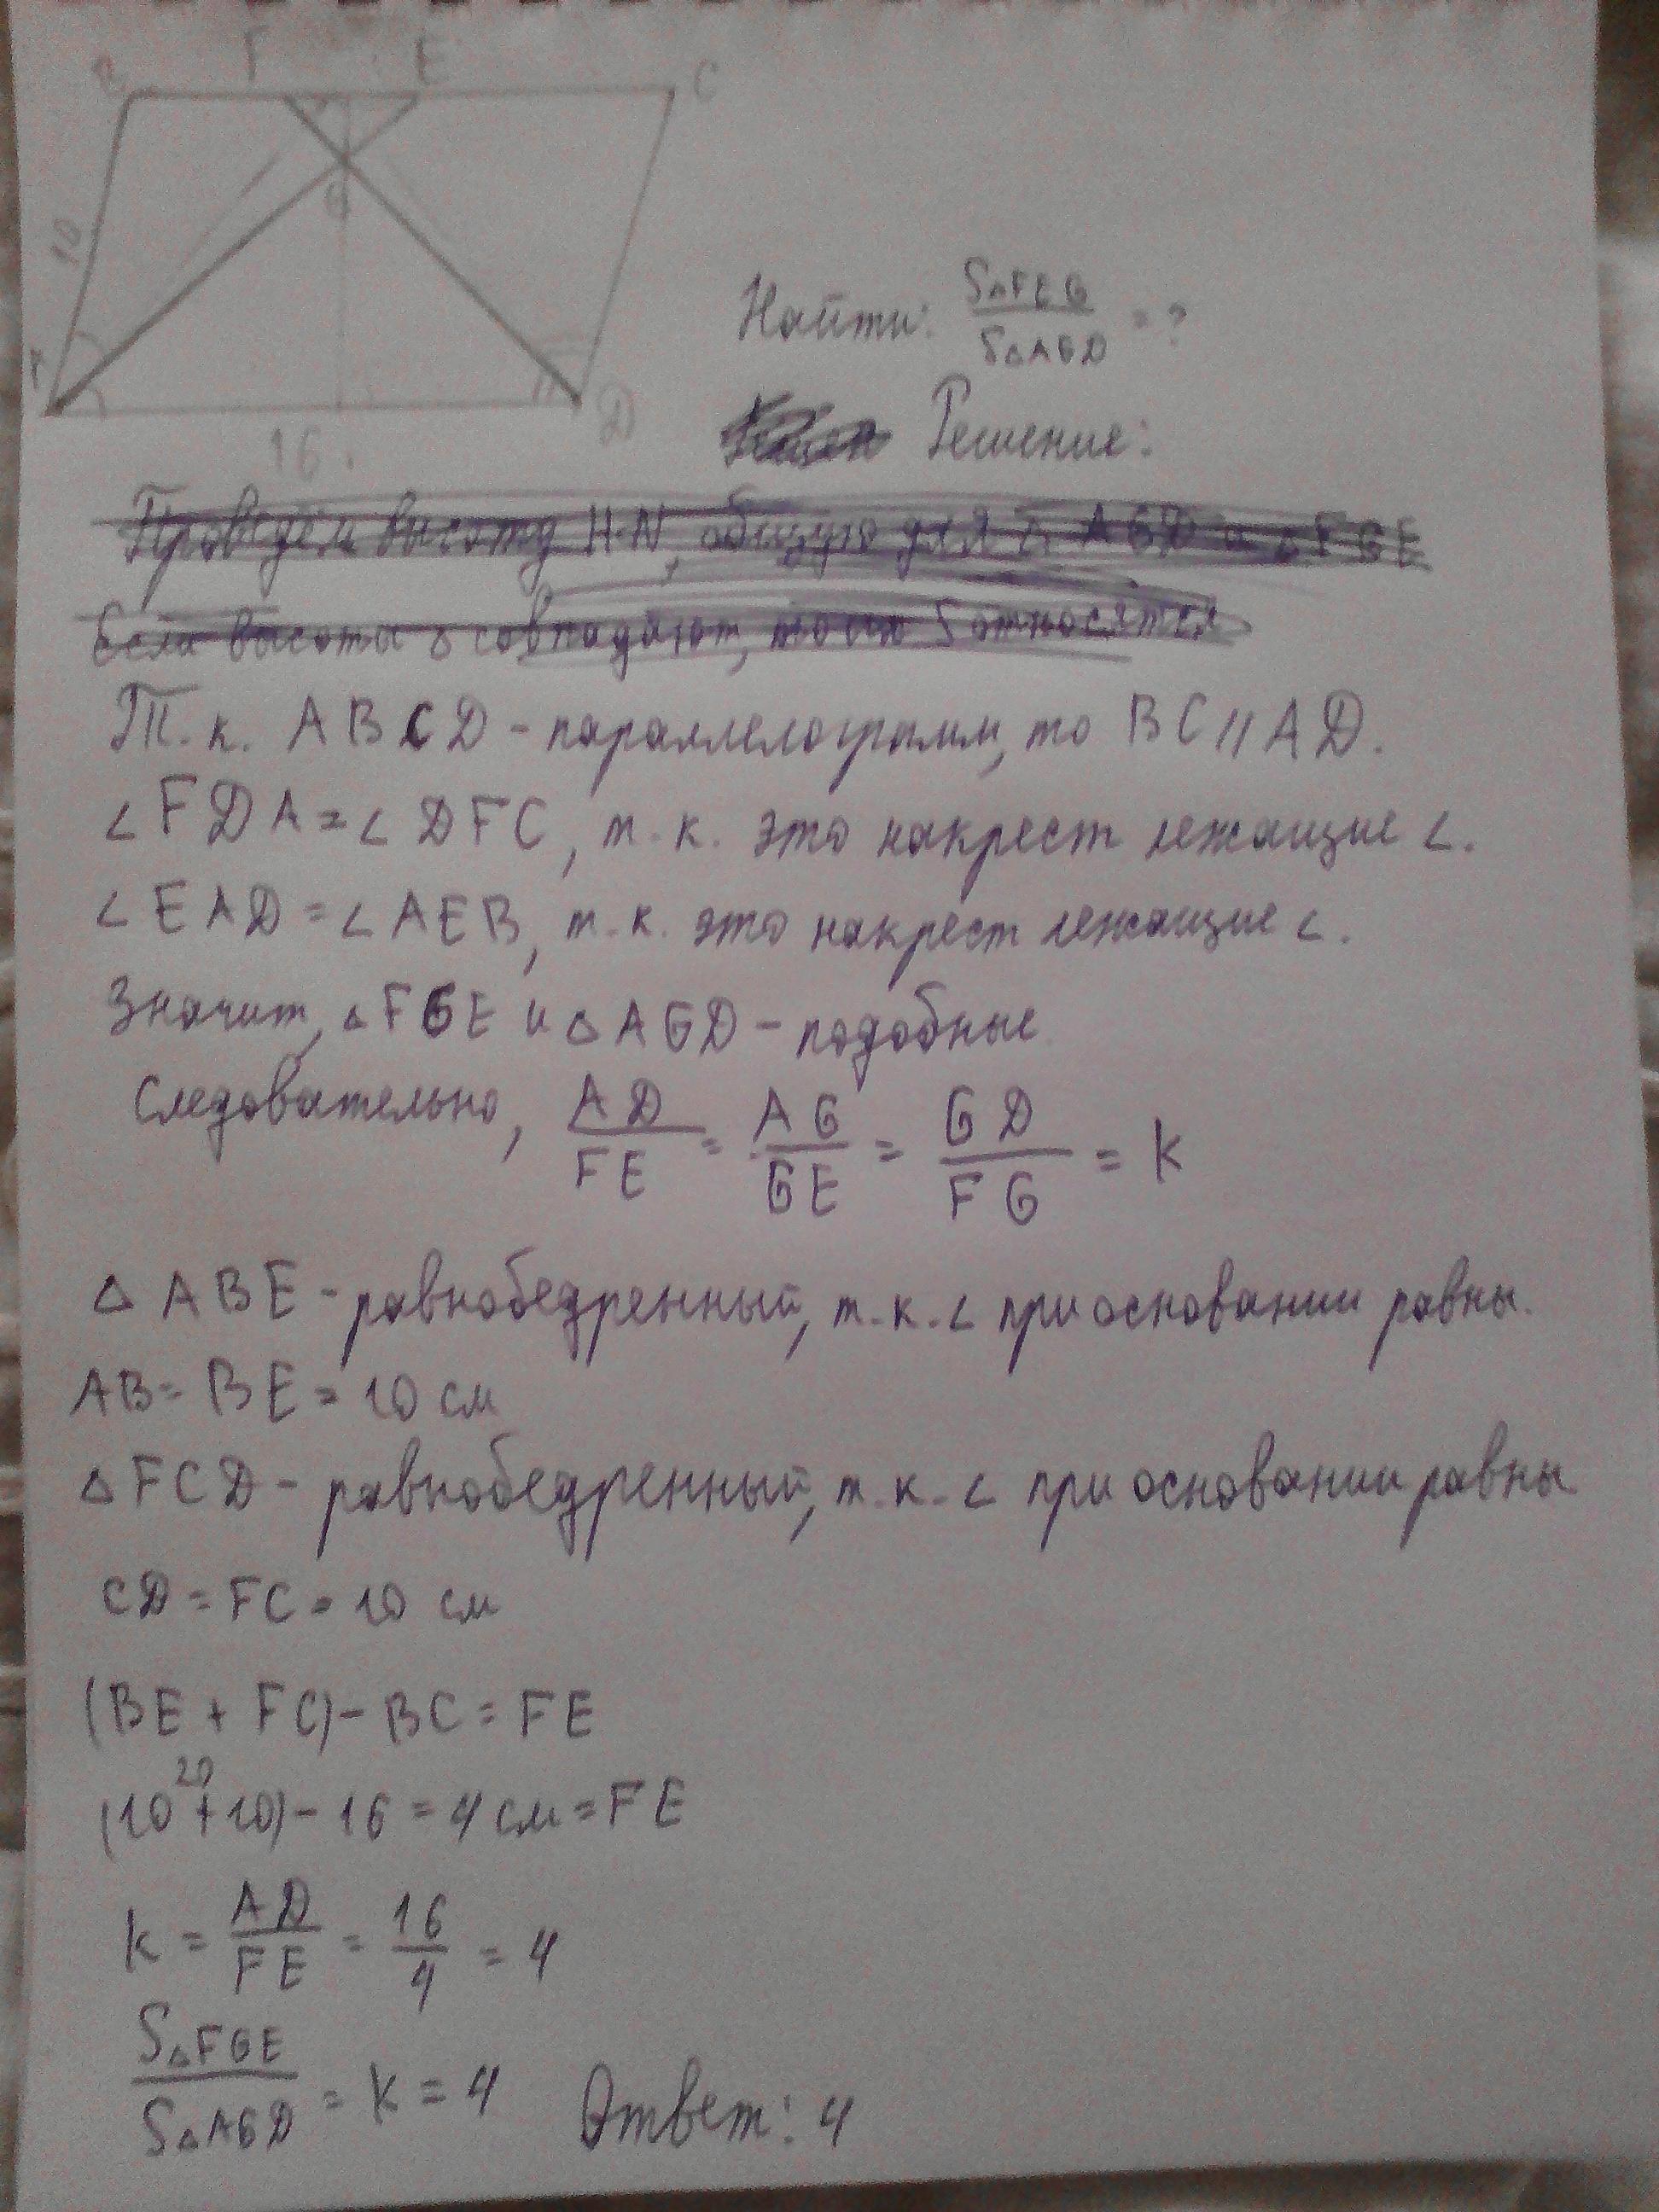 B F E C
10
G
A D
16
Найти: S△FEG / S△AGD = ?
Решение:
Проведём высоту HN, общую для △ AGD и △ FGE
Если высоты △ совпадают, то их S относятся
Т.к. ABCD - параллелограмм, то BC//AD.
∠FDA=∠DFC, т.к. это накрест лежащие ∠.
∠EAD=∠AEB, т.к. это накрест лежащие ∠.
Значит, △FGE и △AGD - подобные.
Следовательно, AD/FE = AG/GE = GD/FG = k
△ ABE - равнобедренный, т.к. ∠ при основании равны.
AB = BE = 10 см
△FCD - равнобедренный, т.к. ∠ при основании равны
CD = FC = 10 см
(BE + FC) - BC = FE
20
(10+10) - 16 = 4 см = FE
k = AD/FE = 16/4 = 4
S△FGE / S△AGD = k = 4 Ответ: 4